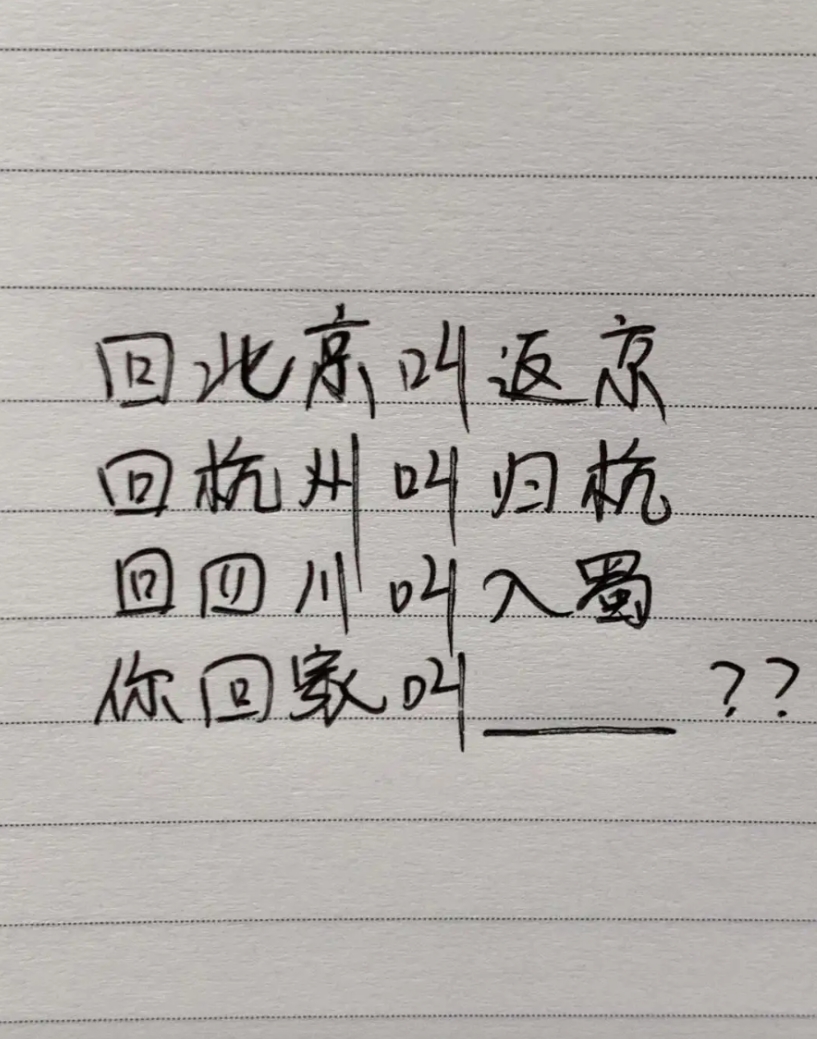 回北京叫返京
回杭州叫归杭
回四川叫入蜀
你回家叫______??